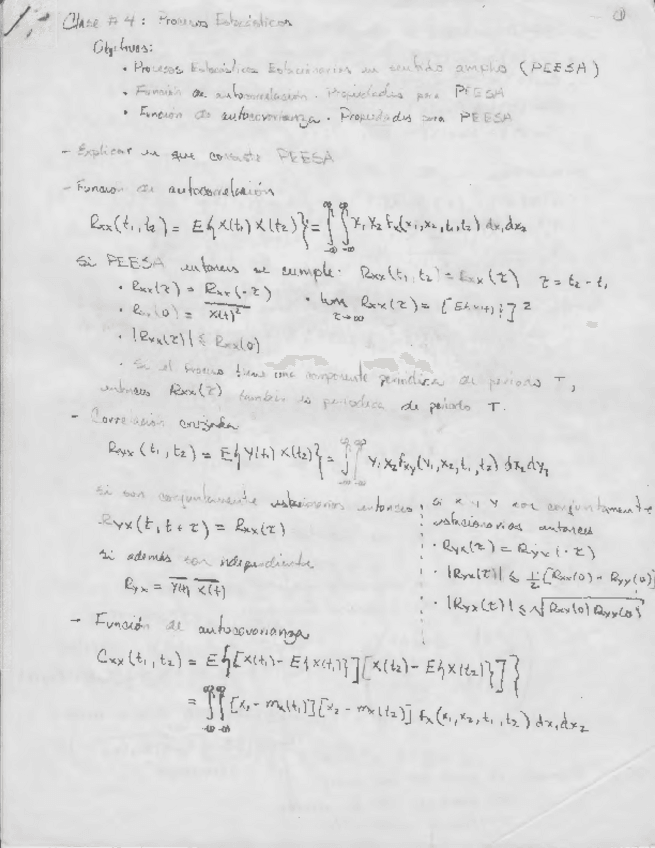 Clase # 4 : Procesos Estocásticos
①
Objetivos:
• Procesos Estocásticos Estacionarios en sentido amplio (PEESA)
• Función de autocorrelación. Propiedades para PEESA
• Función de autocovarianza. Propiedades para PEESA
- Explicar en que consiste PEESA
- Función de autocorrelación
Rxx(t₁,t₂) = E{X(t₁) X(t₂)} = ∫∫ x₁ x₂ fx(x₁,x₂,t₁,t₂) dx₁dx₂
Si PEESA entonces se cumple. Rxx(t₁,t₂) = Rxx(τ) τ = t₂ - t₁
• Rxx(τ) = Rxx(-τ) • lim τ→∞ Rxx(τ) = [E{x(t)}]²
• Rxx(0) = \overline{X(t)²}
• |Rxx(τ)| ≤ Rxx(0)
• Si el proceso tiene una componente periódica de periodo T,
entonces Rxx(τ) también es periódica de periodo T.
- Correlación cruzada
Ryx(t₁,t₂) = E{Y(t₁) X(t₂)} = ∫∫ y₁ x₂ fxy(y₁,x₂,t₁,t₂) dx₂dy₁
Si son conjuntamente estacionarios entonces
Ryx(t,t+τ) = Rxx(τ)
Si además son independiente
Ryx = \overline{Y(t)} \overline{X(t)}
Si X y Y son conjuntamente
estacionarios entonces
• Ryx(τ) = Ryx(-τ)
• |Ryx(τ)| ≤ ½[Rxx(0) - Ryy(0)]
• |Ryx(τ)| ≤ √Rxx(0) Ryy(0)
- Función de autocovarianza
Cxx(t₁,t₂) = E{[X(t₁) - E{X(t₁)}][X(t₂) - E{X(t₂)}]}
= ∫∫ [x₁ - mx(t₁)][x₂ - mx(t₂)] fx(x₁,x₂,t₁,t₂) dx₁dx₂